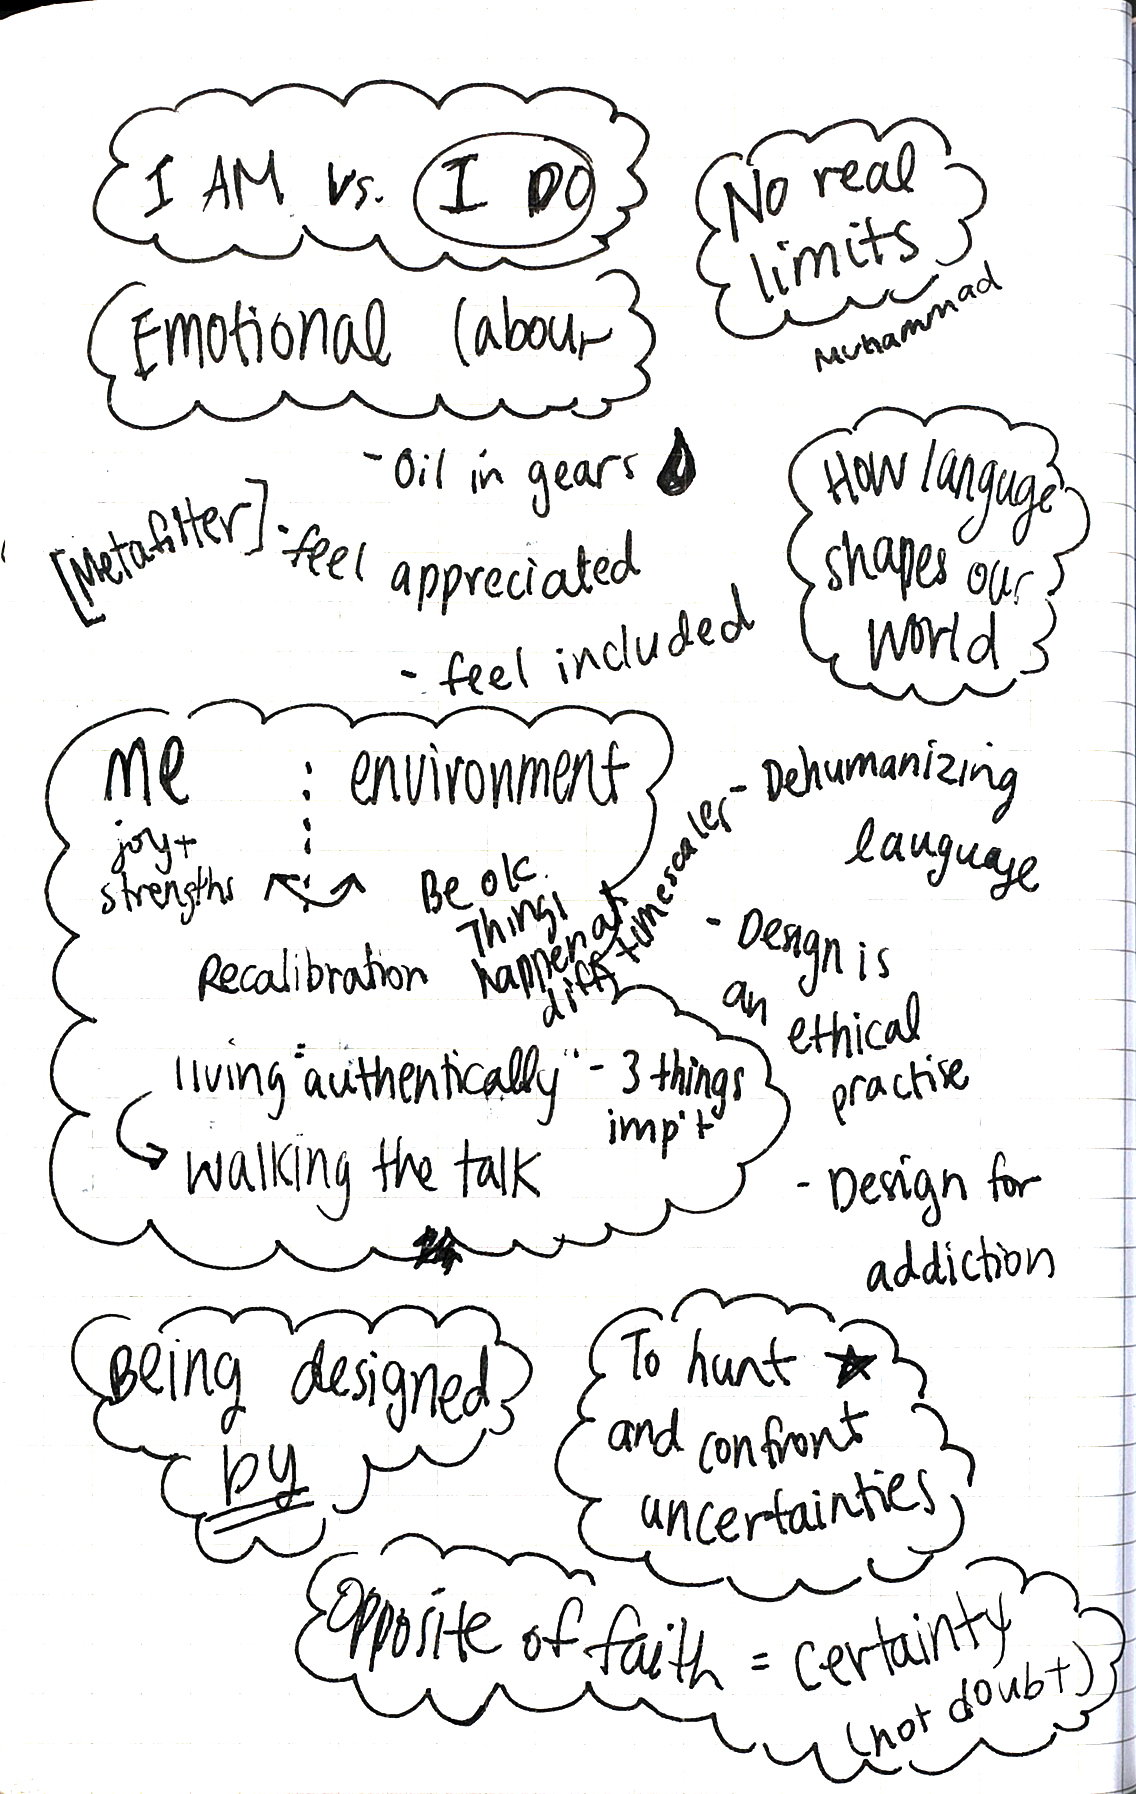 I AM vs. I DO
No real
limits
Muhammad
Emotional labour
- Oil in gears
[Metafilter] - feel appreciated
- feel included
How languge
shapes our
world
- Dehumanizing
language
- Design is
an ethical
practise
- Design for
addiction
me environment
joy +
strengths
Be ok.
Things
happen at
diff timescales
Recalibration
living "authentically" - 3 things
imp't
walking the talk
Being designed
by
To hunt
and confront
uncertainties
Opposite of faith = certainty
(not doubt)